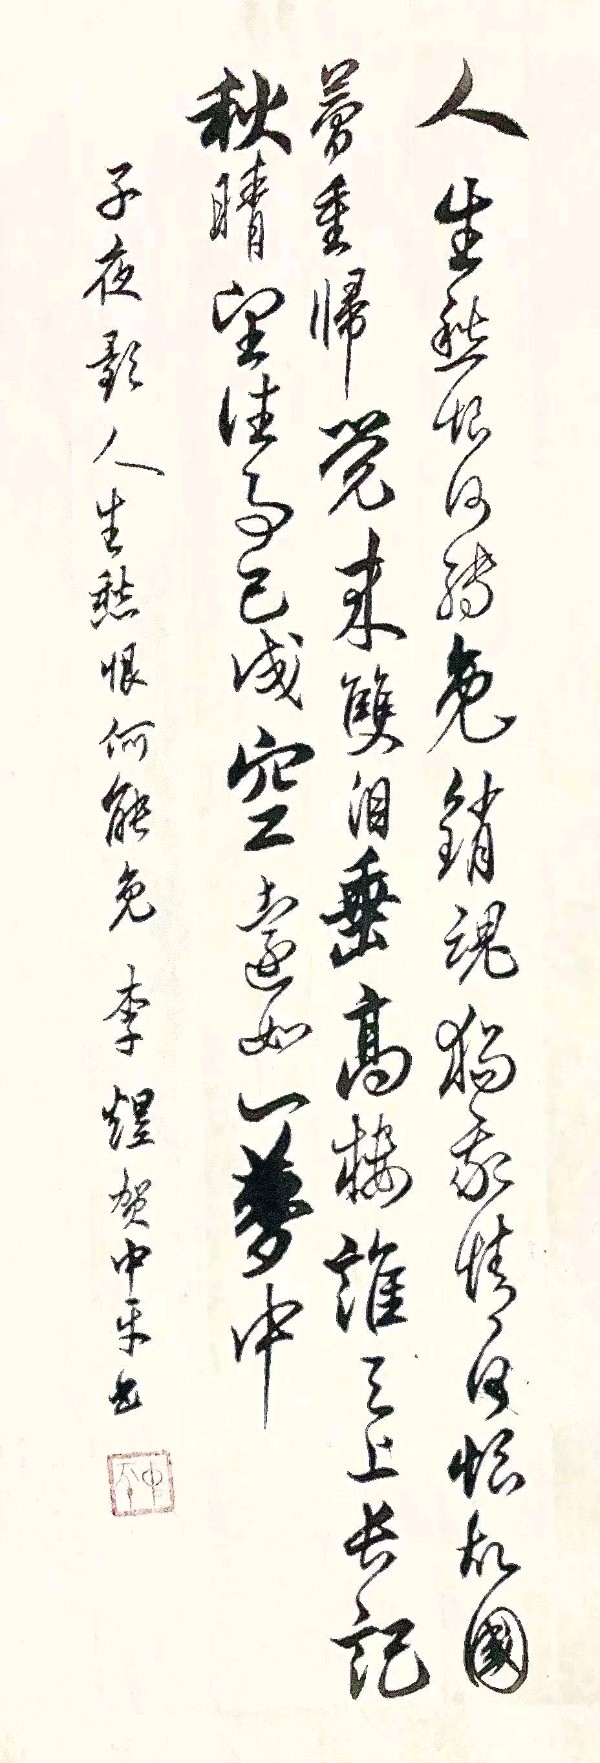 人生愁恨何能免銷魂獨我情何限故國
夢重歸覺来雙泪垂高樓誰与上长記
秋晴望往事已成空還如一夢中
子夜歌人生愁恨何能免 李煜贺中平书